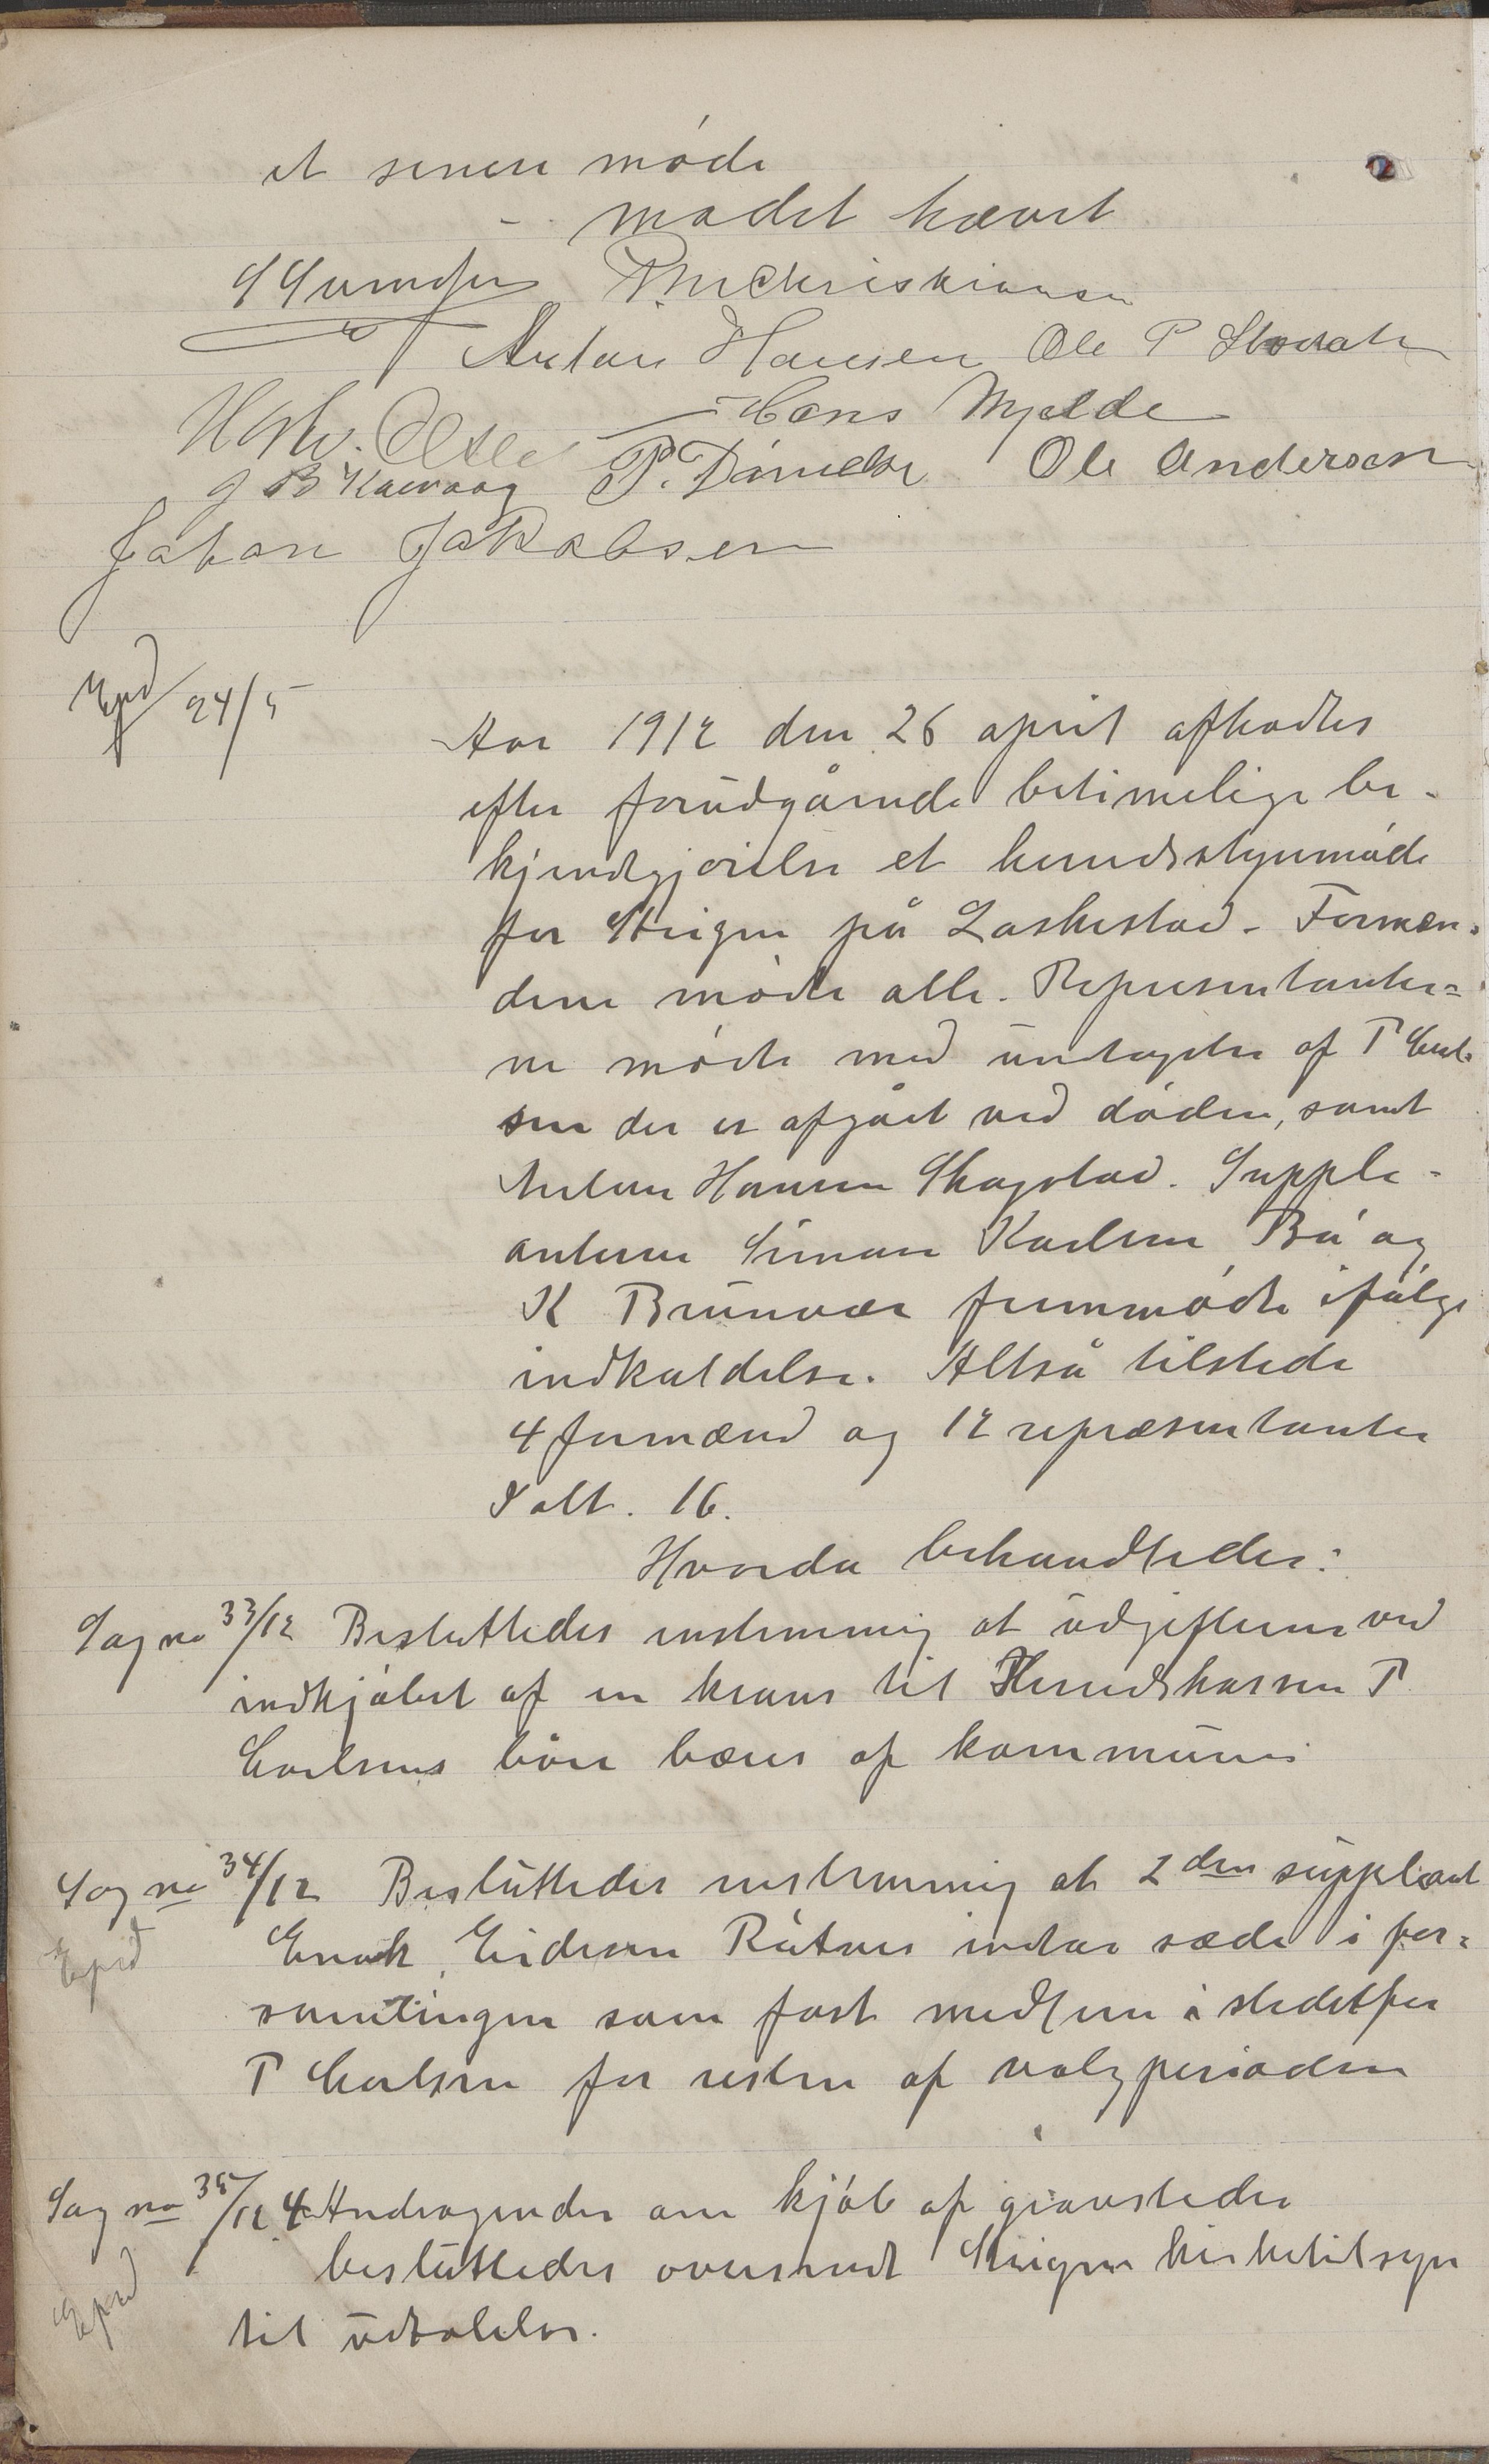 et senere møde
mødet hævet
Chr Christiansen
Anton Hansen Ole P
Hans Mjelde
P. Danielsen Ole Andersen
Johan Jakobsen
Expd 24/5
Aar 1912 den 26 april afholdtes
efter forudgående betimelige be-
kjendtgjørelse et herredsstyremøde
for Steigen på Laskestad. Formæn-
dene mødte alle. Representanter=
ne mødte med undtagelse af P Carl-
sen der er afgået ved døden, samt
Anton Hansen Skagstad. Supple-
anterne Simon Karlsen Bø og
K Brunvær fremmødte ifølge
indkaldelse. Altså tilstede
4 formænd og 12 repræsentanter
I alt. 16.
Hvorda behandledes:
Sag no 33/12 Besluttedes enstemmig at udgifterne ved
indkjøbet af en krans til Herredskassere P
Carlsens båre bæres af kommunen
Sag no 34/12 Besluttedes enstemmig at 2den suppleant
Expd Enok Eidissen Råtnes indtar sæde i for=
samlingen som fast medlem i stedetfor
P Carlsen for resten af valgperioden
Sag no 35/12 4 Andragender om kjøb af gravsteder
Expd besluttedes oversendt Steigen kirketilsyn
til udtalelse.